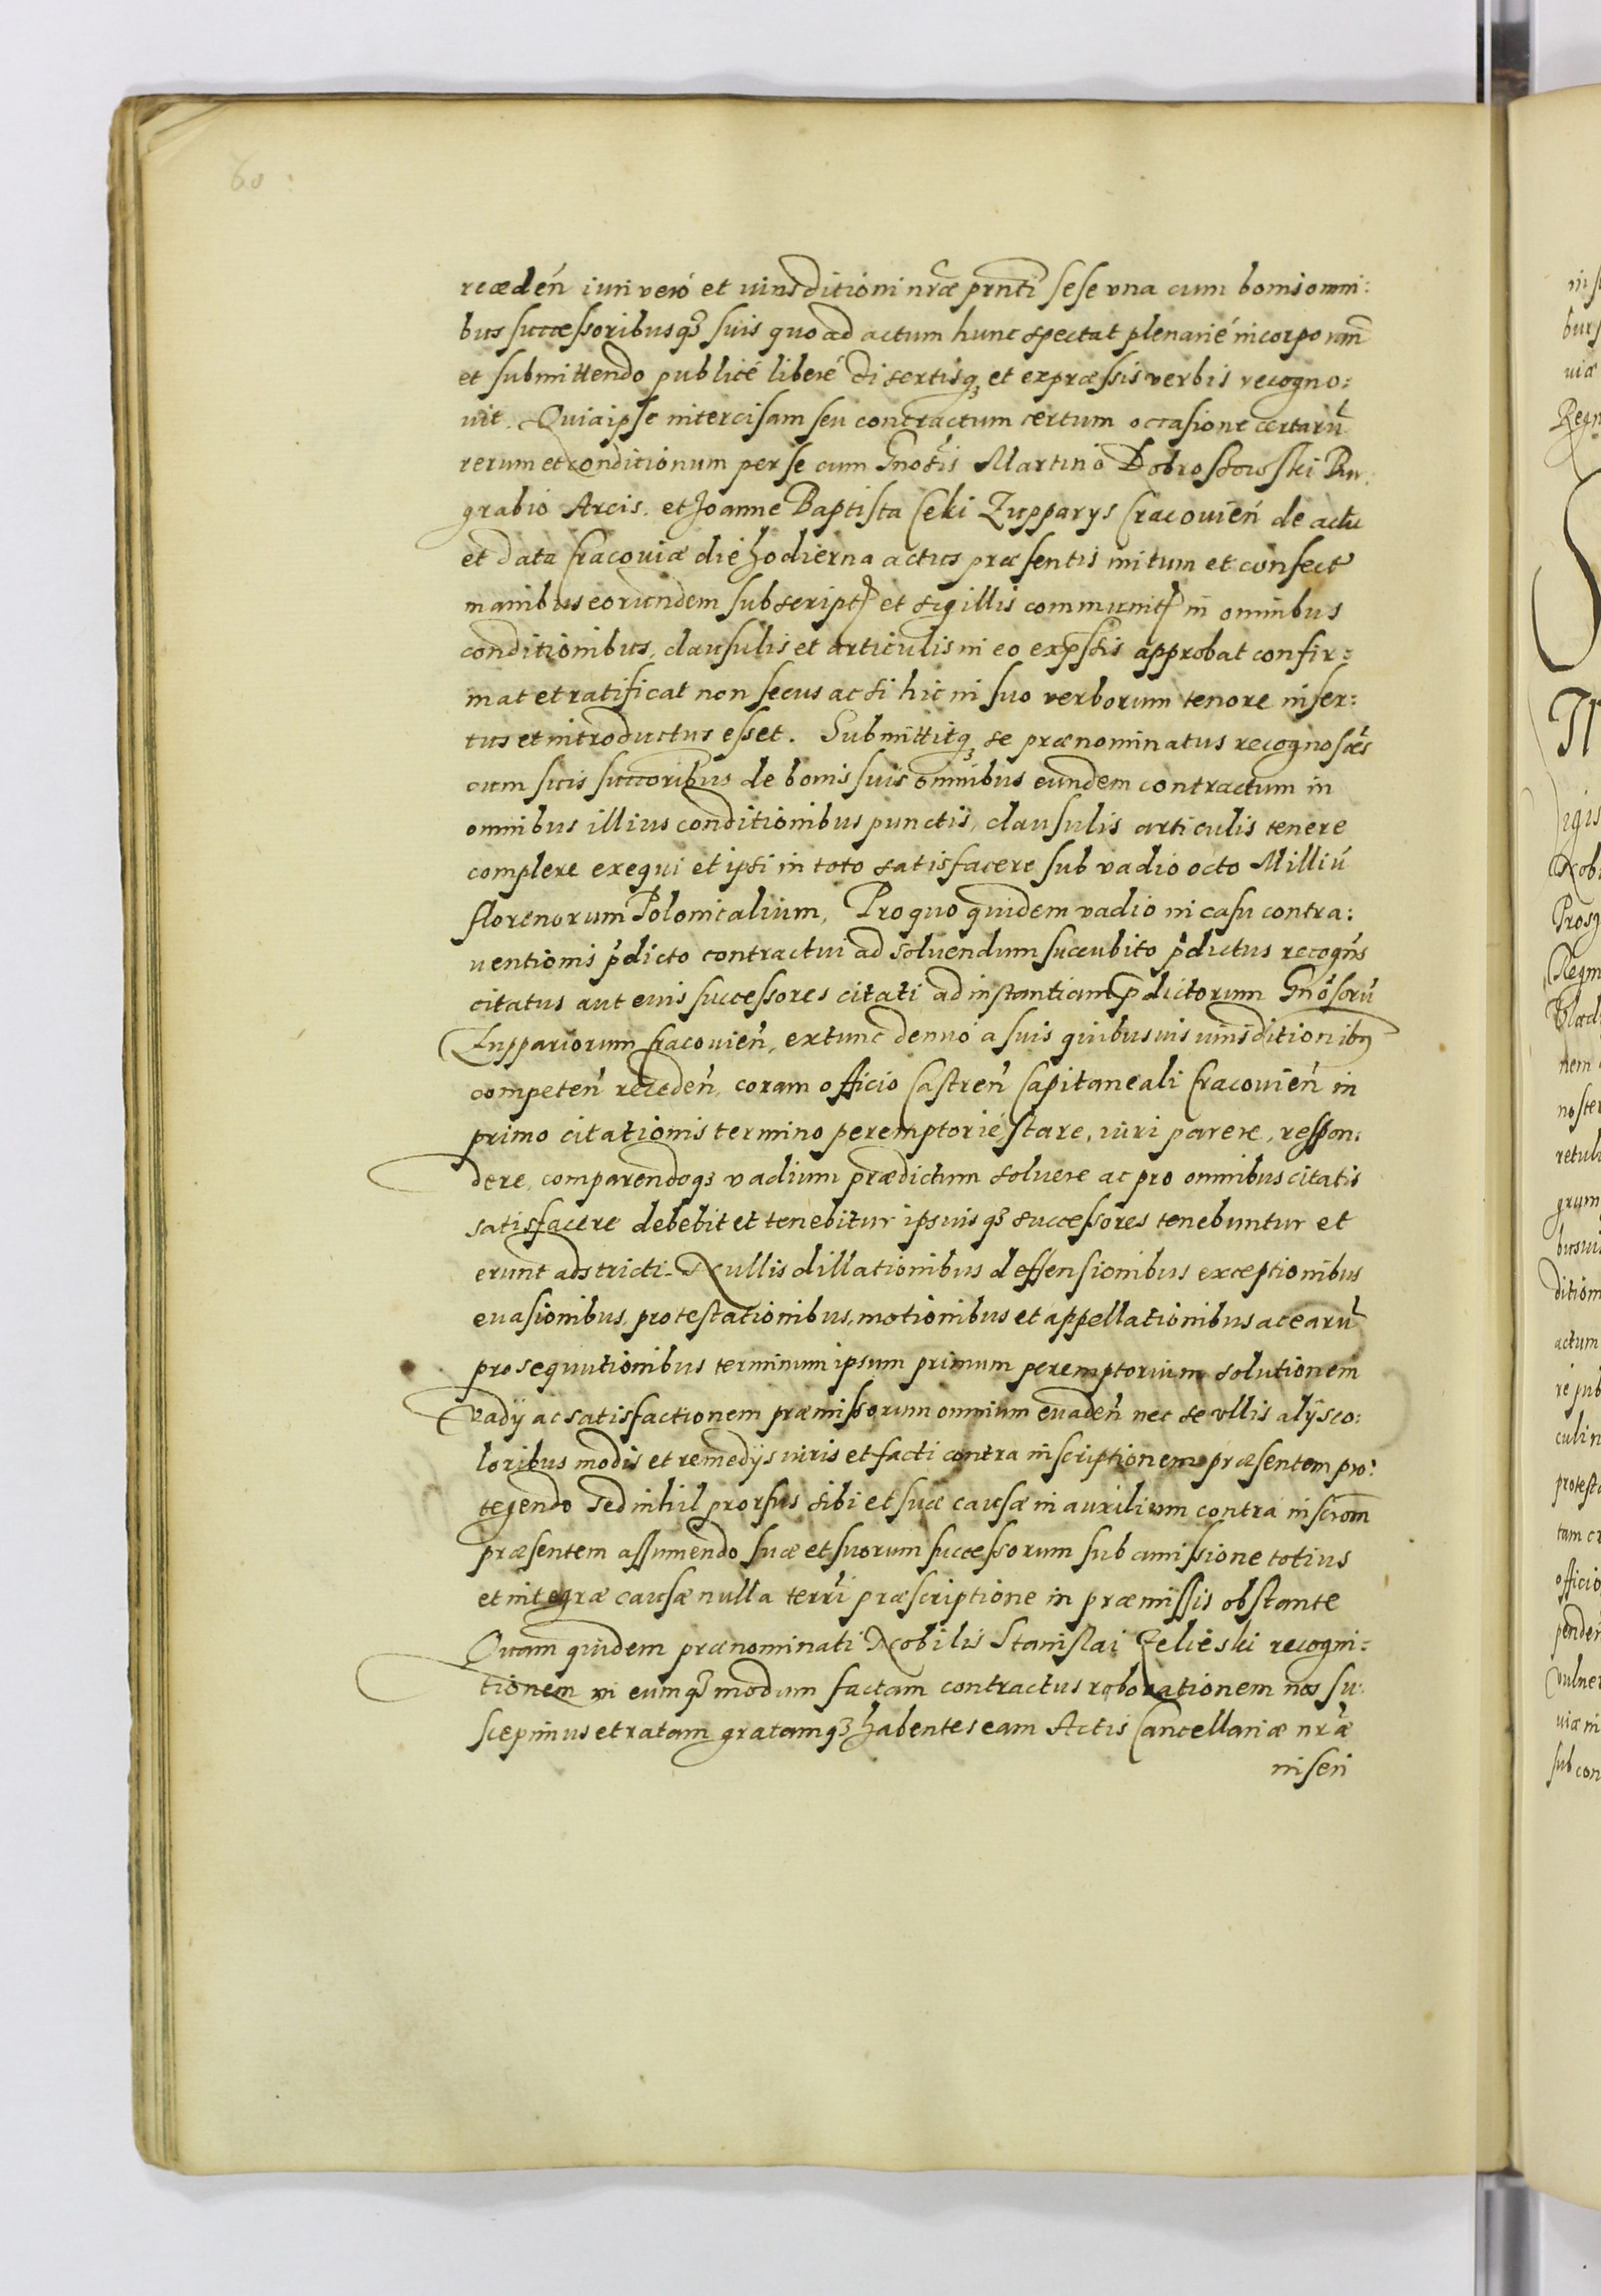 60:
recædeń iuri veró et iurisditioni nr̃æ prñti sese vna cum bonis omni:
bus successoribusq3 suis quo ad actum hunc spectat plenarié incorporañ
et submittendo publicé liberé disertisq3 et expræssis verbis recogno:
uit. Quia ipse intercisam seu contractum certum occasione certarũ
rerum et conditionum per se cum Gnosis Martino Dobroszowski Bur
grabio Arcis. et Joanne Baptista Ceki Zupparys Cracouień de actu
et data Cracouiæ die hodierna actus præsentis initum et confect
manibus eorundem subscript et sigillis communit in omnibus
conditionibus, clausulis et articulis in eo expr̃sis approbat confir:
mat et ratificat non secus ac si hic in suo verborum tenore inser:
tus et introductus esset. Submittitq3 se prænominatus recognoscẽs
cum suis succoribus de bonis suis omnibus eundem contractum in
omnibus illius conditionibus punctis, clausulis articulis tenere
complere exequi et ipsi in toto satisfacere sub vadio octo Milliũ
florenorum Polonicalium, Pro quo quidem vadio in casu contra:
uentionis p̃dicto contractui ad soluendum succubito p̃dictus recogñs
citatus aut euis successores citati ad instantiam p̃dictorum Gnosorũ
Zuppariorum Cracouień, extunc denuó a suis quibusuis iurisditionibus
competeń recedeń, coram officio Castreń Capitaneali Cracouień in
primo citationis termino peremptorié stare, iuri parere, respon:
dere, comparendoq3 vadium prædictum soluere ac pro omnibus citatis
satisfacere debebit et tenebitur ipsuisq3 successores tenebuntur et
erunt adstricti. Nullis dillationibus deffensionibus exceptionibus
euasionibus, protestationibus, motionibus et appellationibus ac earũ
prosequutionibus terminum ipsum primum peremptorium solutionem
vadÿ ac satisfactionem præmissorum omnium euadeń nec se vllis alÿs co:
loribus modis et remedÿs iuris et facti contra inscriptionem præsentem pro:
tegendo sed nihil prorsus sibi et suæ causæ in auxilium contra inscrõm
præsentem assumendo suæ et suorum successorum sub amissione totius
et integræ causæ nulla terrĩ præscriptione in præmissis obstante
Quam quidem prænominati Nobilis Stanislai Zelieski recogni:
tionem in eumq3 modum factam contractus roborationem nos su:
scepimus et ratam gratamq3 habentes eam Actis Cancellariæ nr̃æ
inseri